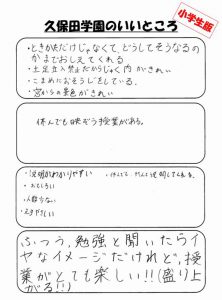 久保田学園のいいところ
小学生版
・ときかただけじゃなくて、どうしてそうなるの
かまでおしえてくれる
・土足立入禁止だからじゅく内がきれい
・こまめにおそうじをしている。
・窓からの景色がきれい
休んでも映ぞう授業がある。
・説明がわかりやすい
・おもしろい
・人数少ない
ふつう、勉強と聞いたらイ
ヤなイメージだけれど、授
業がとても楽しい!!(盛り上
がる!!)